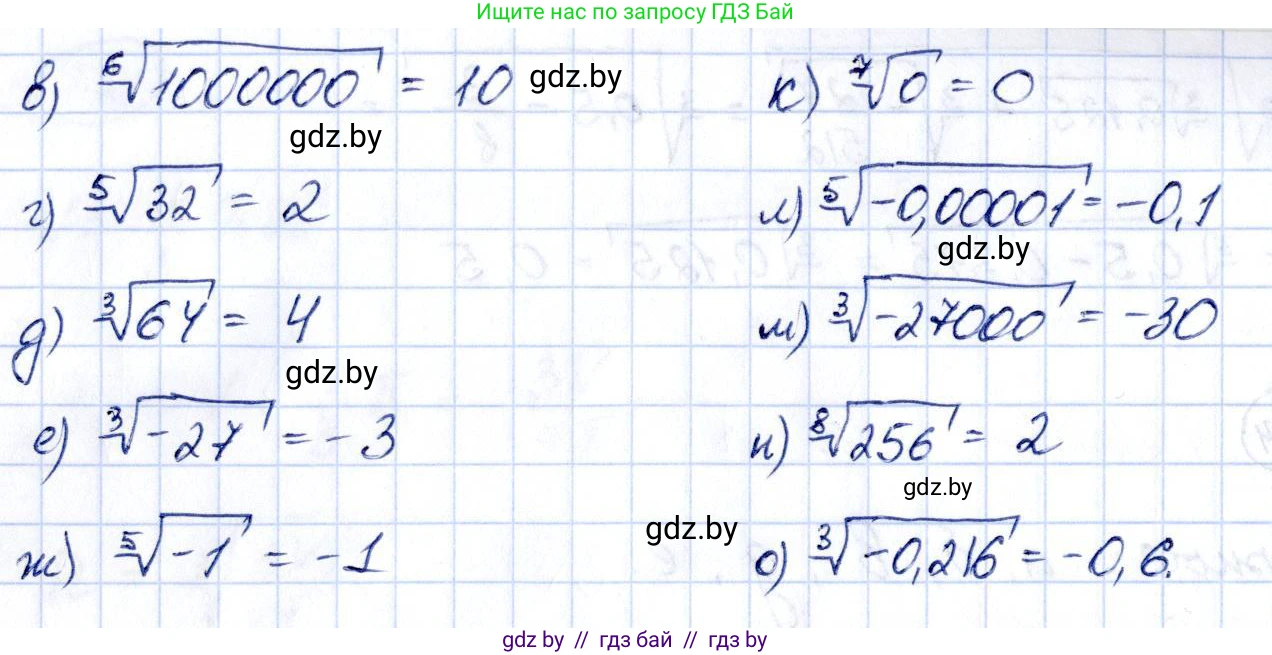 Ищите нас по запросу ГДЗ Бай
в) ⁶√1000000 = 10 gdz.by
gdz.by
г) ⁵√32 = 2
д) ³√64 = 4
gdz.by
е) ³√-27 = -3
ж) ⁵√-1 = -1
к) ⁷√0 = 0
л) ⁵√-0,00001 = -0,1
gdz.by
м) ³√-27000 = -30
н) ⁸√256 = 2
gdz.by
gdz.by
о) ³√-0,216 = -0,6.
gdz.by // гдз бай // gdz.by